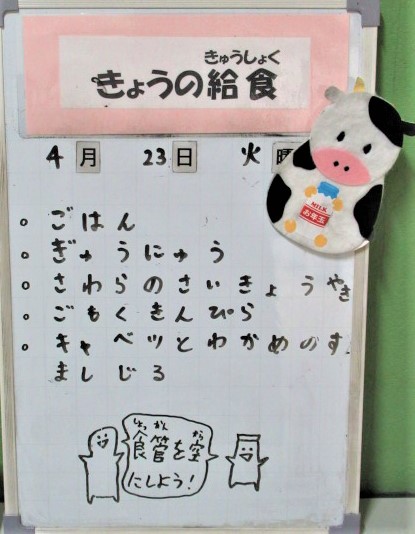 きゅうしょく
きょうの給食
4月 23日 火曜
MILK
お年玉
ごはん
ぎゅうにゅう
さわらのさいきょうやき
ごもくきんぴら
キャベツとわかめのす
ましじる
しょっかん から
食管を空
にしよう!